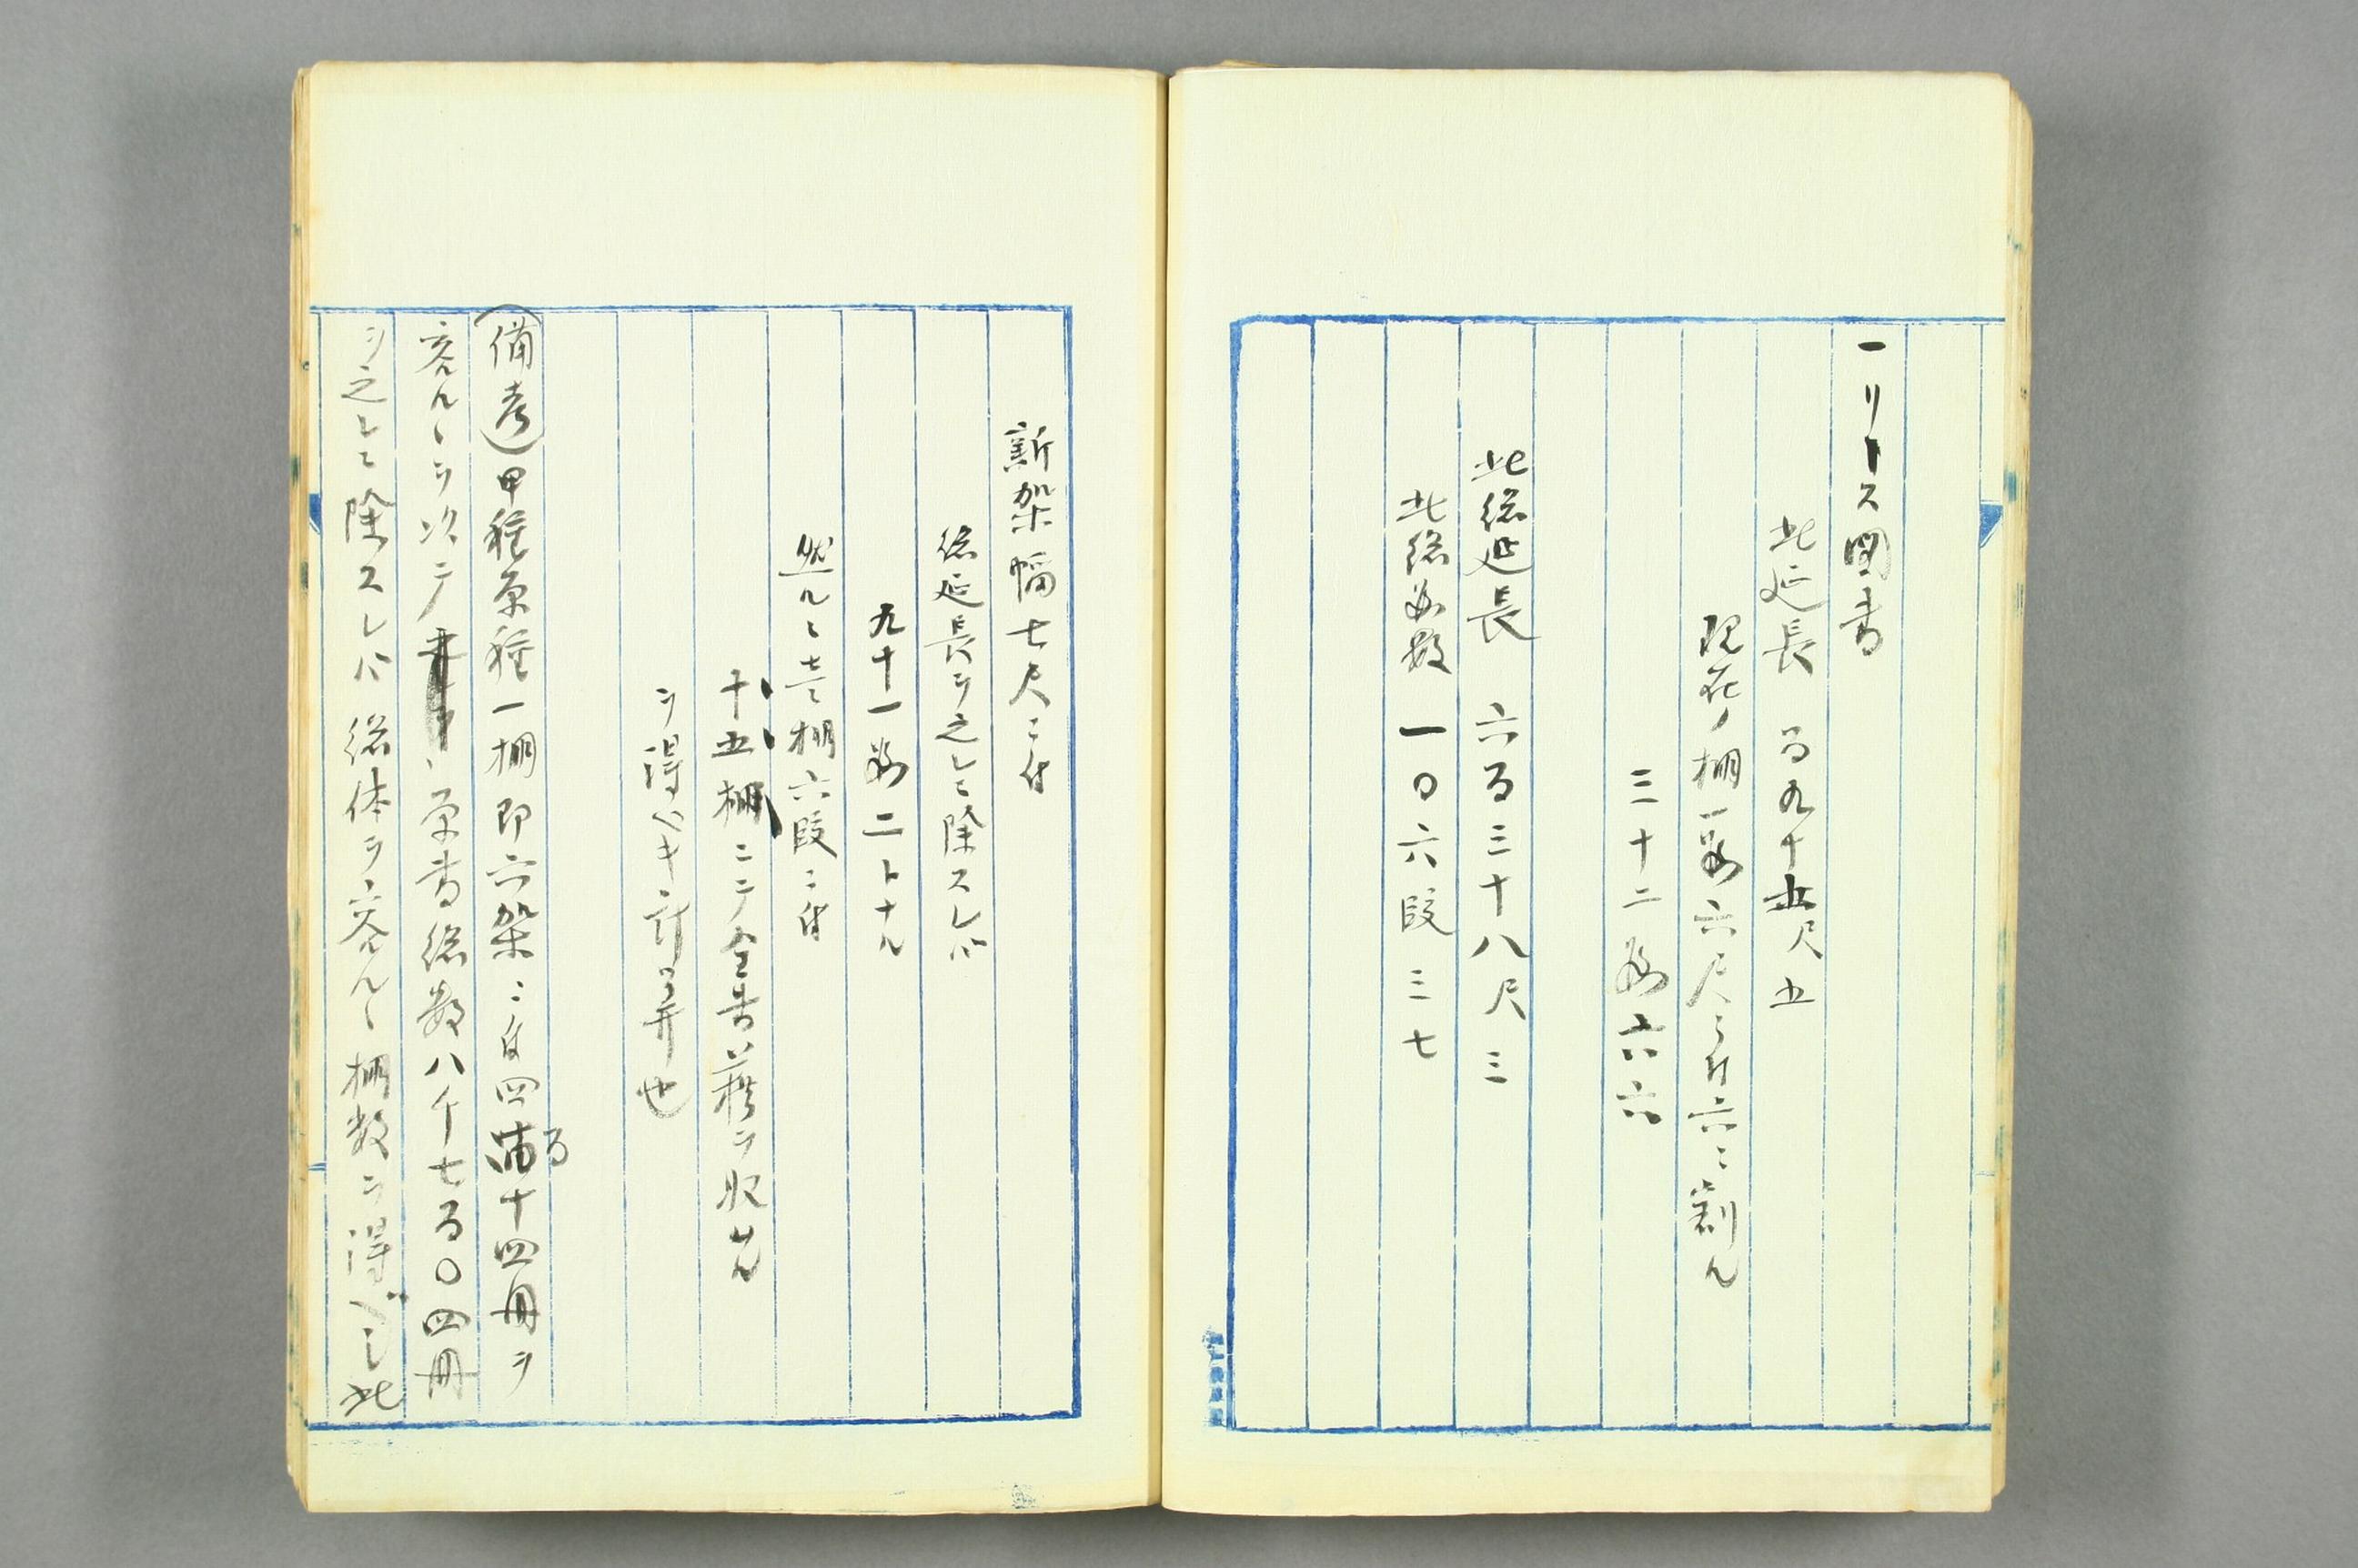 一リース図書
此延長 百九十五尺五
現在ノ棚一段六尺ニ付六ニ割ル
三十二段六六
此総延長 六百三十八尺三
此総段数 一〇六段三七
新架幅七尺ニ付
総延長ヲ之レニテ除スレバ
九十一段二トナル
然ルニ壱棚六段ニ付
十五棚ニテ全書籍ヲ収ムル
ヲ得ベキ計算也
(備考)甲種原種一棚即六架ニ付四百十四冊ヲ
容ルルヲ以テ原書総数八千七百〇四冊
ヲ之レニテ除スレバ総体ヲ容ルル棚数ヲ得ベシ此